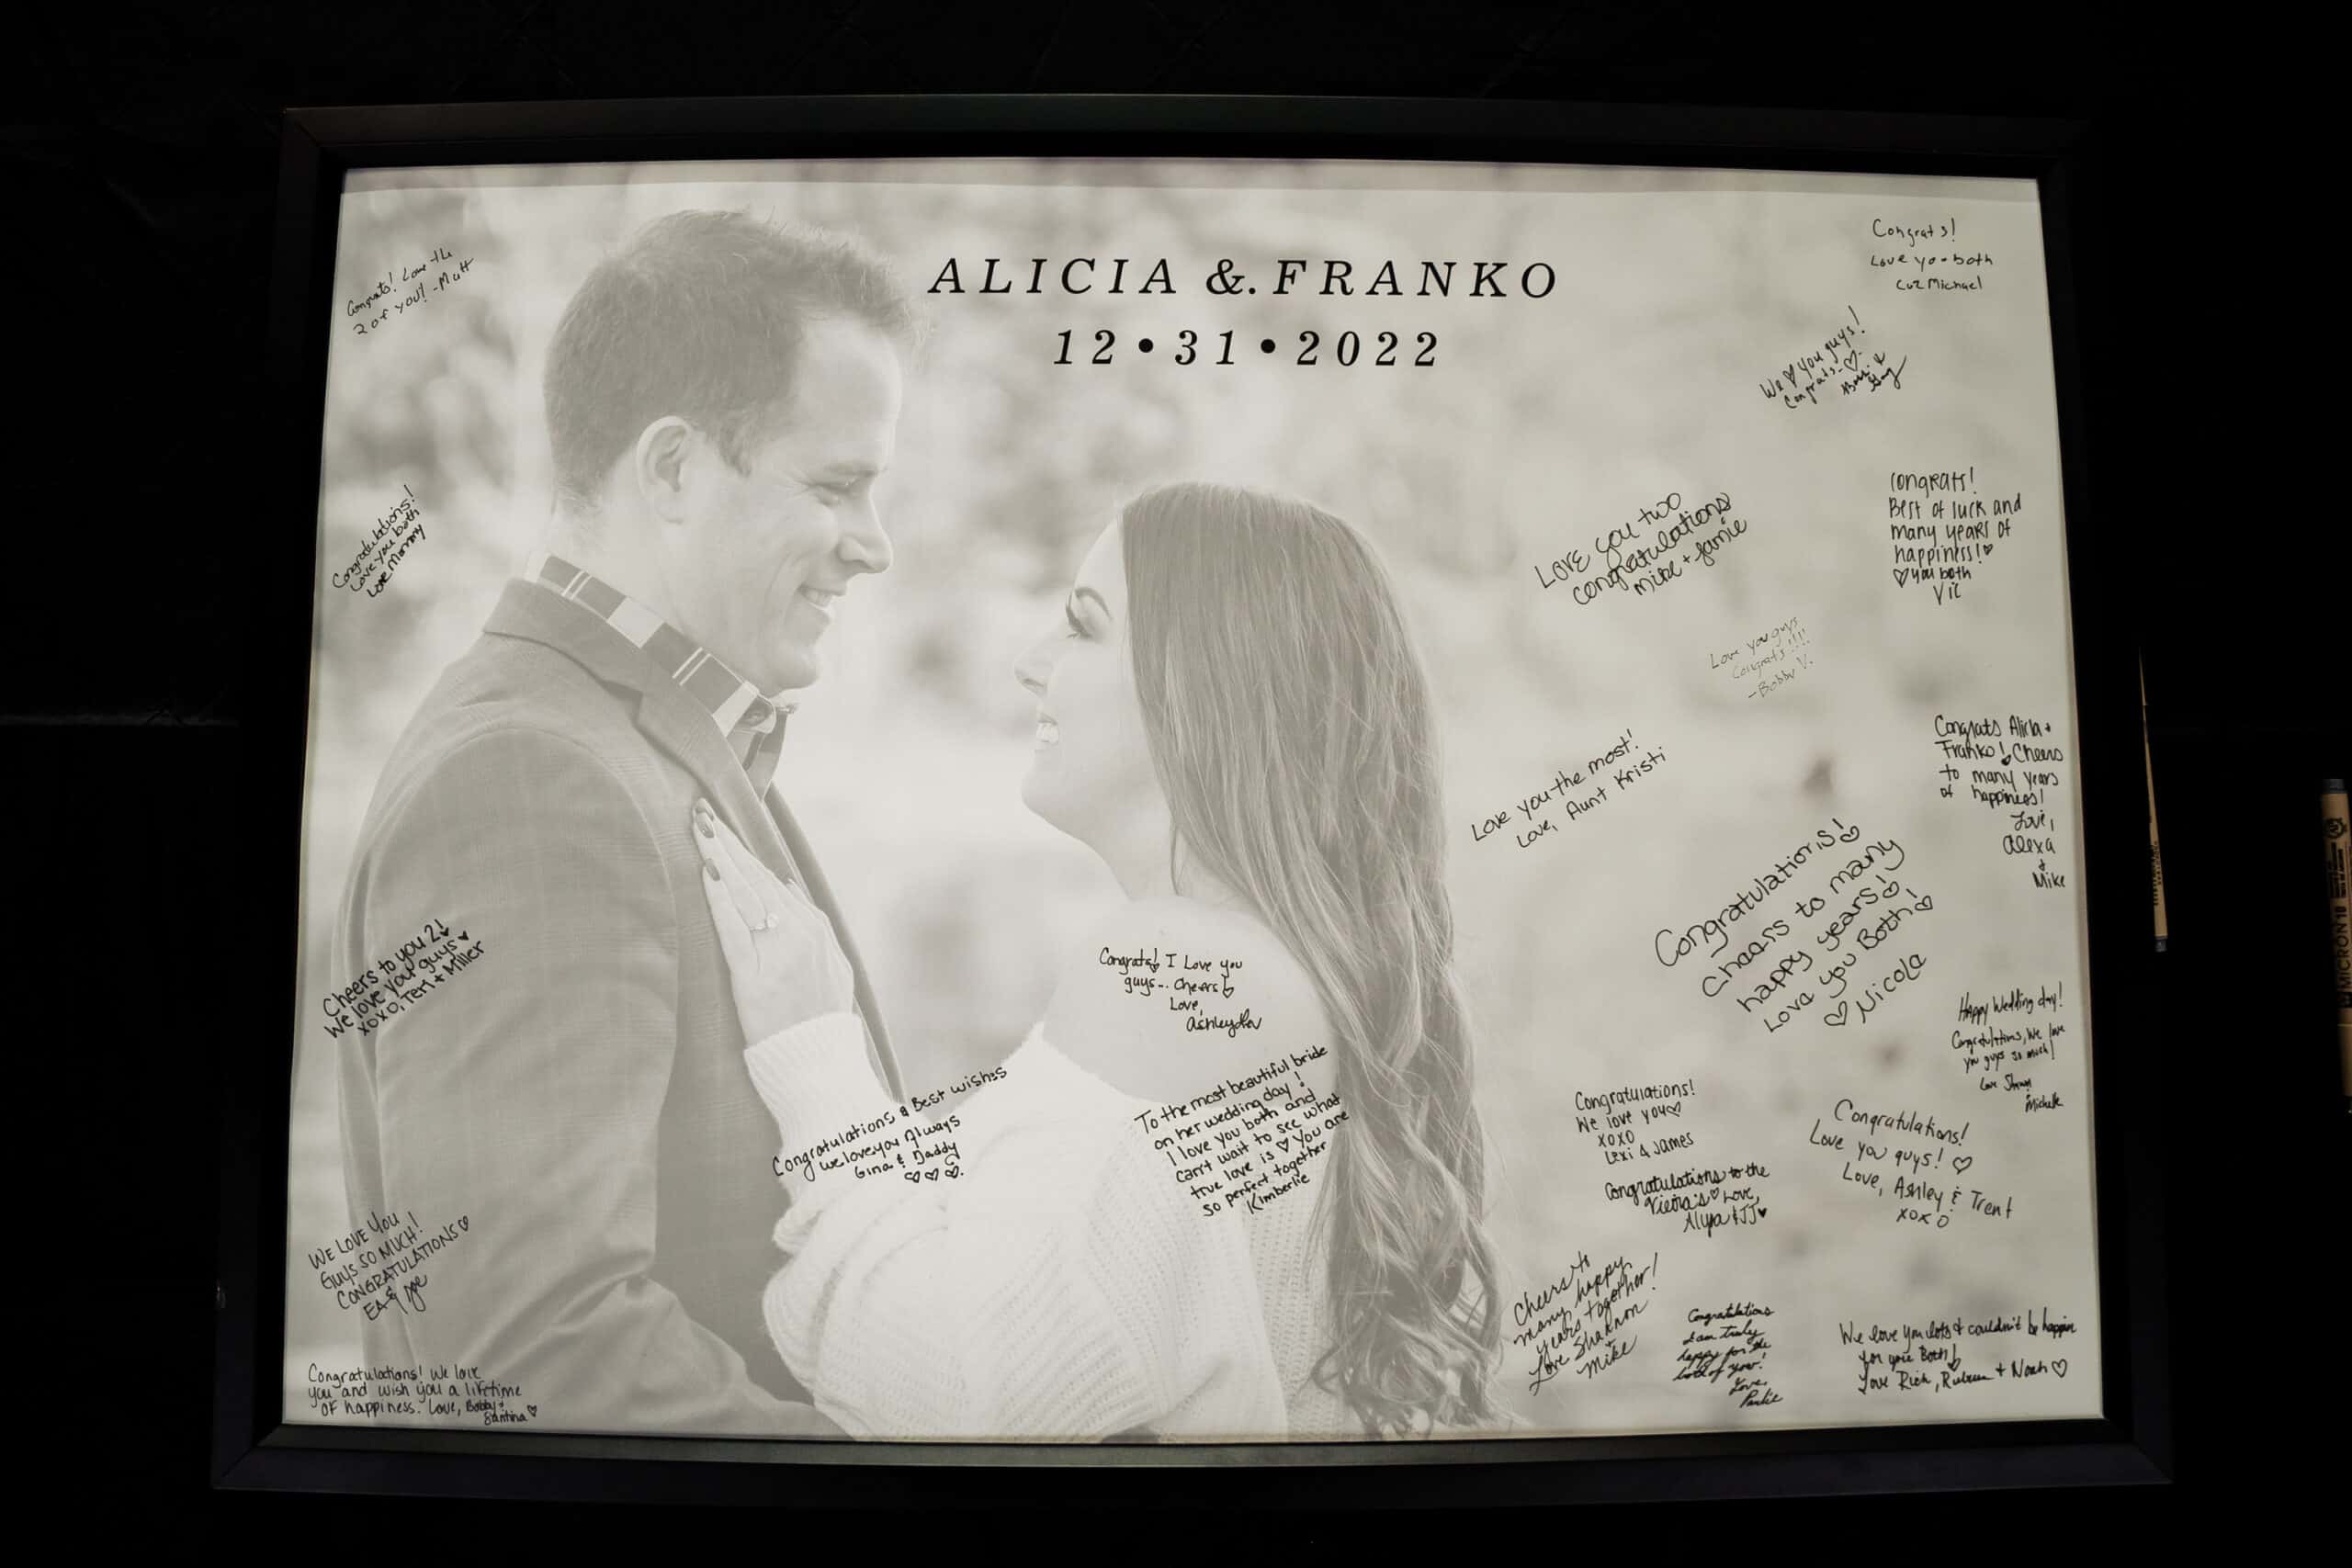 ALICIA &. FRANKO
12•31•2022
Congrats! Love the
2 of you! -Matt
Congratulations!
Love you both
Love Mommy
Cheers to you 2!
We love you guys
xoxo, Teri + Miller
WE LOVE YOU
GUYS SO MUCH!
CONGRATULATIONS
EA & Joe
Congratulations! We love
you and wish you a lifetime
of happiness. Love, Bobby +
Santina
Congratulations & Best wishes
we love you Always
Gina & Daddy
Congrats! I Love you
guys... Cheers!
Love,
To the most beautiful bride
on her wedding day!
I love you both and
can't wait to see what
true love is ♡ You are
so perfect together
Kimberlie
Congrats!
Love you both
Cuz Michael
We ♡ you guys!
Congrats-♡-
&
Love you two
congratulations
Mike + Jamie
Congrats!
Best of luck and
many years of
happiness!♡
♡ you both
Vic
Love you guys
Congrats!!!!
-Bobby V.
Love you the most!
Love, Aunt Kristi
Congrats Alicia +
Franko! Cheers
to many years
of happiness!
Love,
Alexa
+
Mike
Congratulations!♡
Cheers to many
happy years!♡
Love you Both!♡
♡ Nicola
Happy Wedding day!
Congratulations, We love
you guys so much!
Love Shawn
Michelle
Congratulations!
We love you♡
xoxo
Lexi & James
Congratulations to the
Vieira's♡ Love,
Alysa & JJ♥
Congratulations!
Love you guys! ♡
Love, Ashley & Trent
xoxo
Cheers to
many happy
years together!
Love Shannon
+
Mike
Congratulations
I am truly
happy for the
both of you!
Love,
We love you lots & couldn't be happier
for you Both!
Love Rich, + Noah ♡
MICRON 10